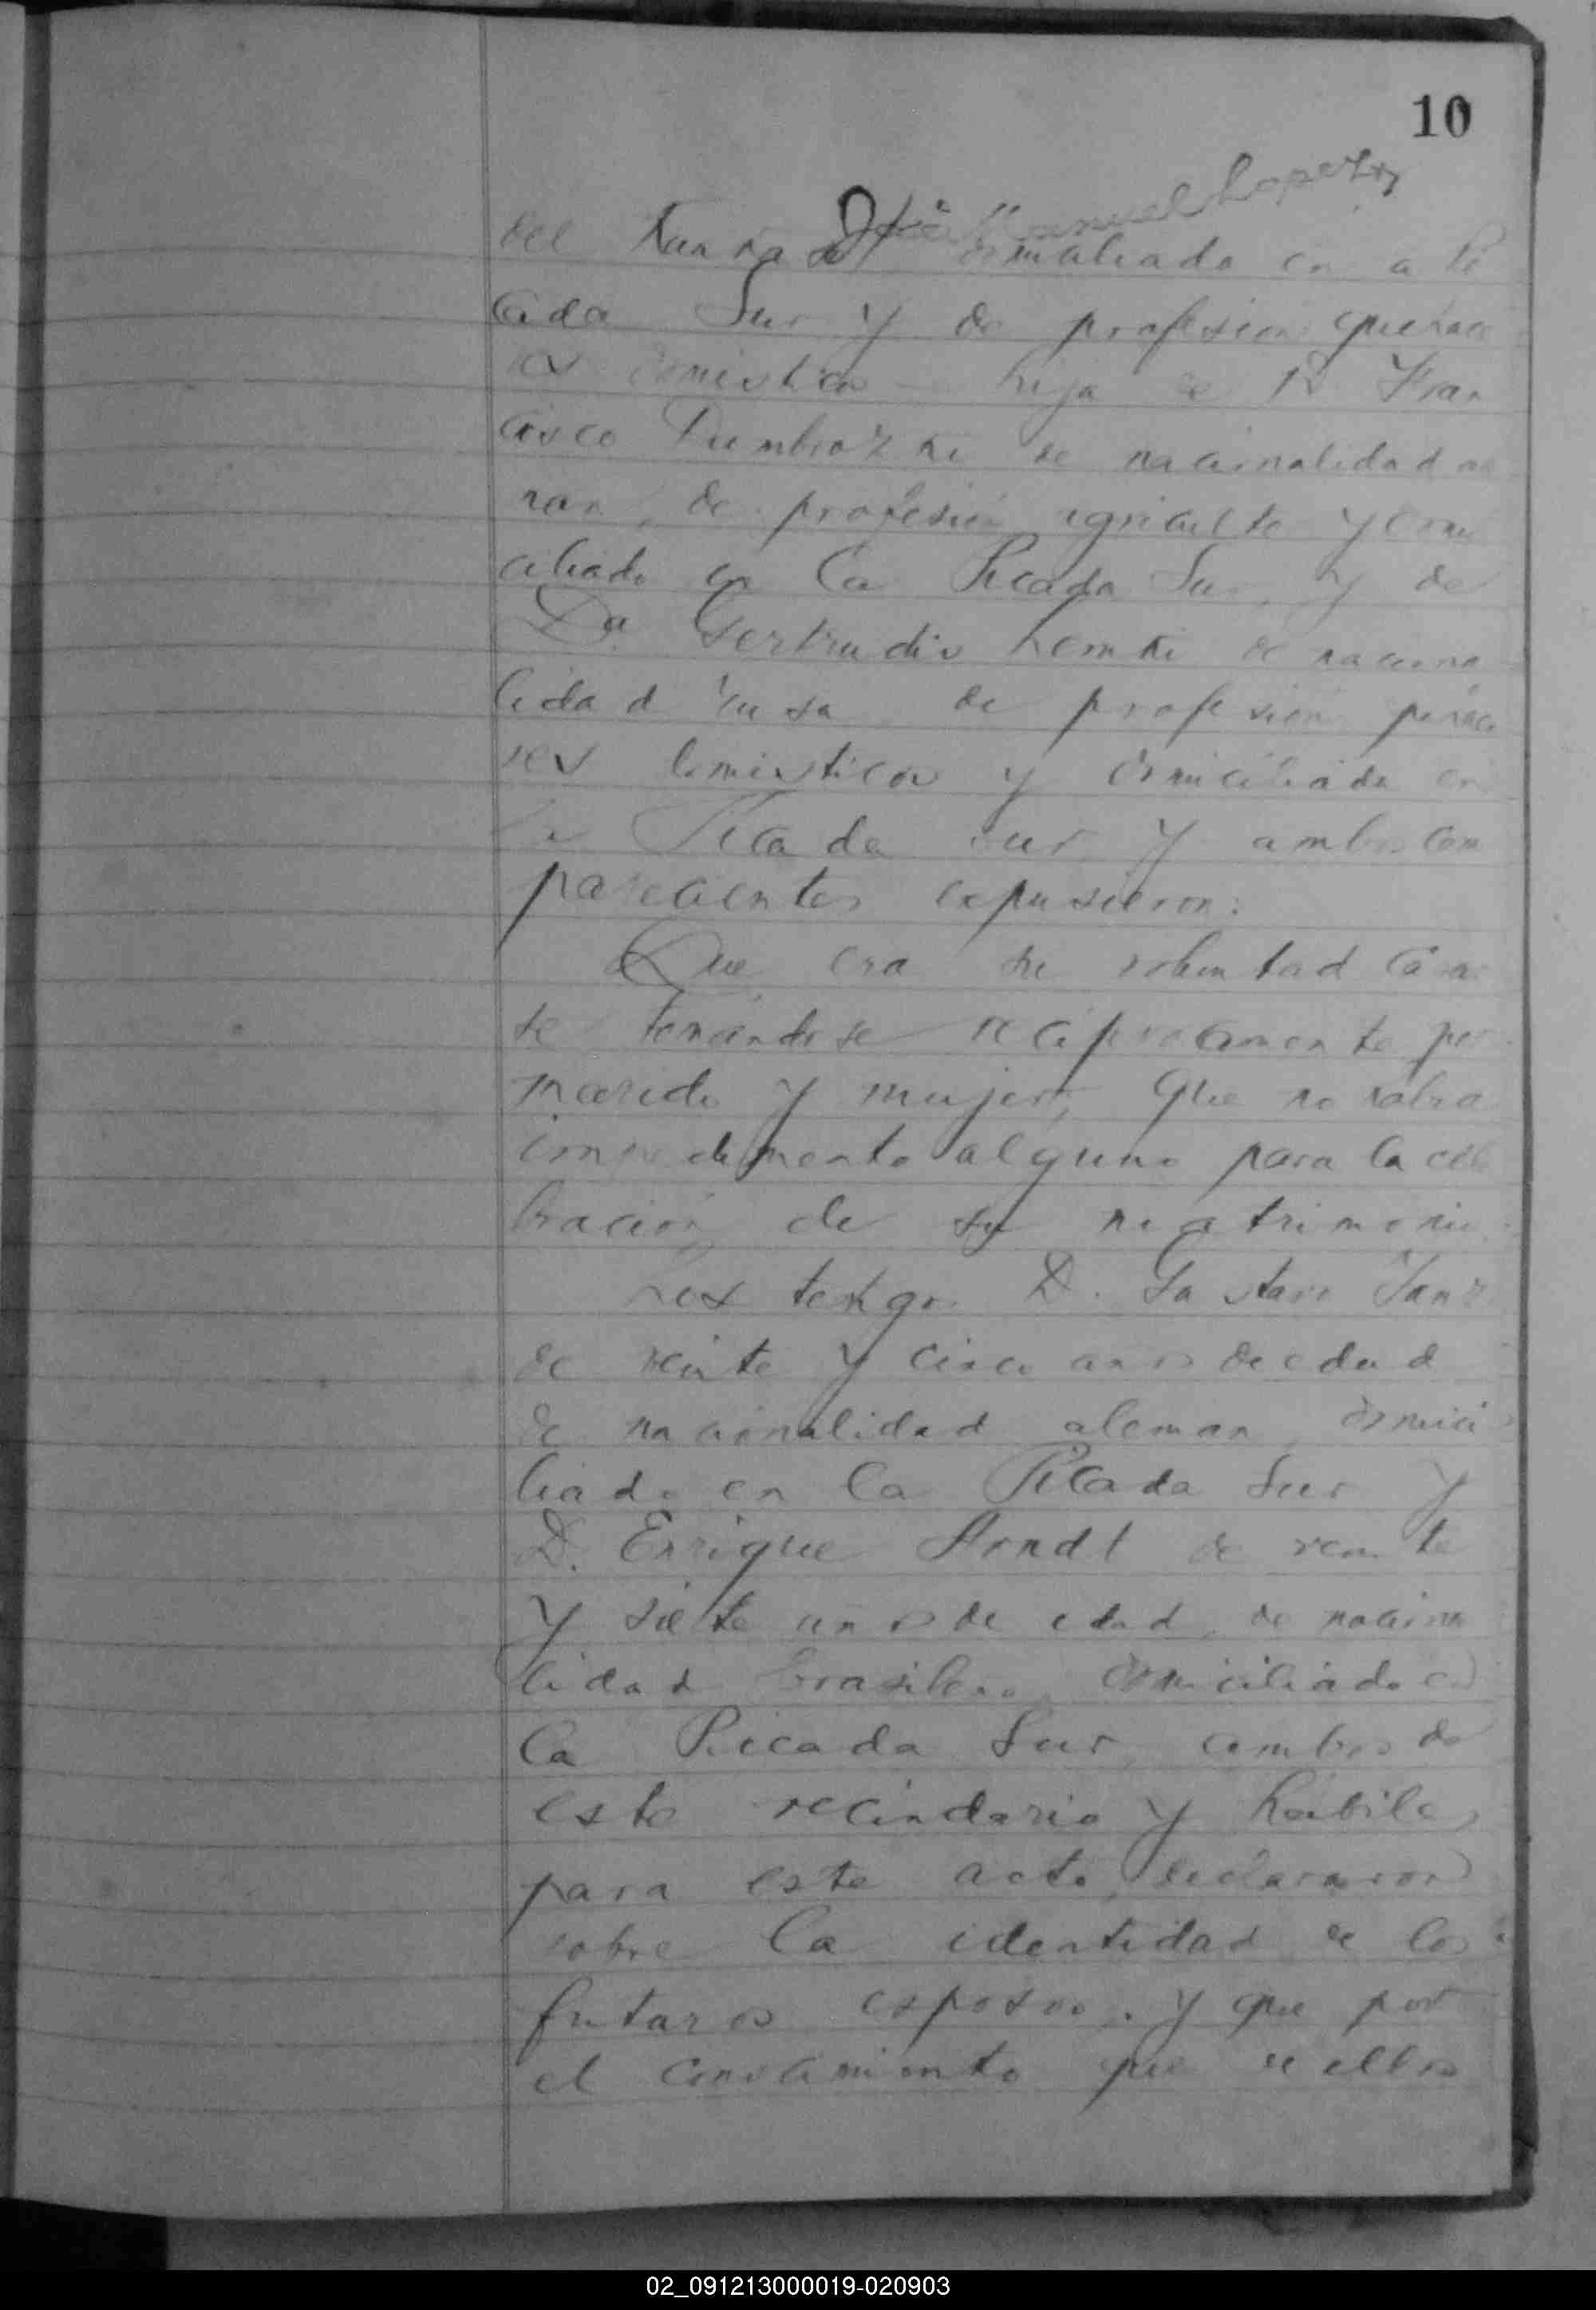 10
José Manuel Lopez
del domiciliada en a Pi
cada Sur y de profesion quehace
res domesticos hija de D Fran
cisco de nacionalidad
de profesión agriculto y domi
ciliado en la Picada Sur, y de
Da. Gertrudis Lemke de naciona
lidad rusa de profesión quehace
res domesticos y domiciliada en
la Picada Sur y ambos com
parecientes expusieron:
Que era su voluntad casar
se tomándose reciprocamente por
marido y mujer, que no habia
impedimento alguno para la cele
bración de su matrimonio
Los testigos D. Gustavo
de veinte y cinco años de edad
de nacionalidad aleman, domici
liado en la Picada Sur y
D. Enrique Arndt de veinte
y siete años de edad, de naciona
lidad brasilero, domiciliado en
la Picada Sur, ambos de
este vecindario y hábiles
para este acto, declararon
sobre la identidad de los
futuros esposos. y que por
el conocimiento que de ellos
02_091213000019-020903